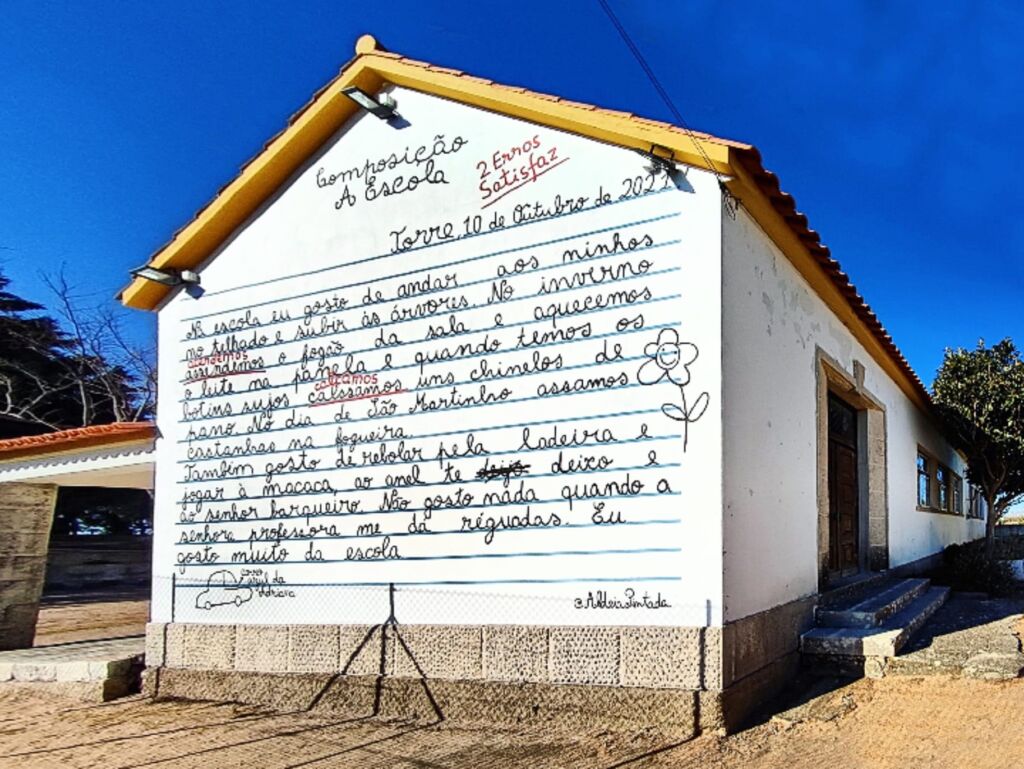 Composição
A Escola
2 Erros
Satisfaz
Torre, 10 de Outubro de 2021
Na escola eu gosto de andar aos ninhos
no telhado e subir às árvores. No inverno
acendemos
assendemos o fogão da sala e aquacemos
o leite na panela e quando temos os
calçamos
botins sujos calssamos uns chinelos de
pano. No dia de São Martinho assamos
castanhas na fogueira.
Também gosto de rebolar pela ladeira e
jogar à macaca, ao anel te deijo deixo e
ao senhor barqueiro. Não gosto nada quando a
senhora professora me dá réguadas. Eu
gosto muito da escola
carro
azul da
Adriana
@AldeiaPintada